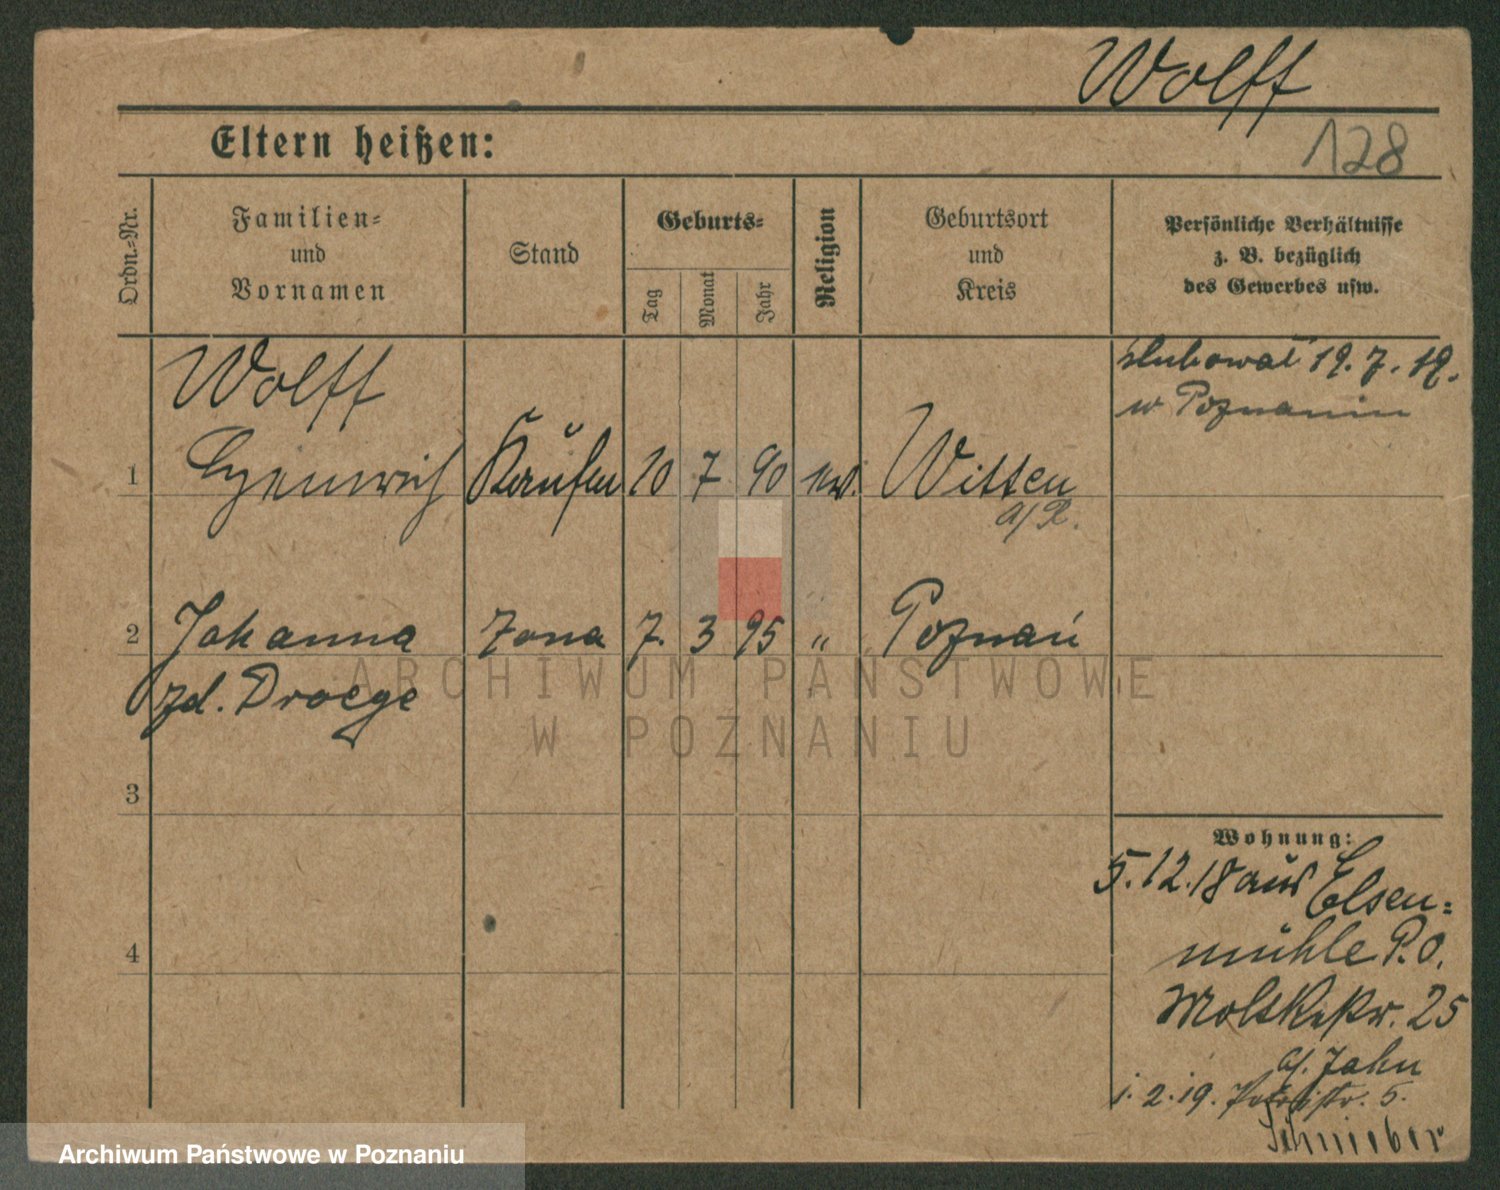 Wolff
128
Eltern heißen:
Ordn.-Nr.
Familien-
und
Vornamen
Stand
Geburts-
Tag
Monat
Jahr
Religion
Geburtsort
und
Kreis
Persönliche Verhältnisse
z. B. bezüglich
des Gewerbes usw.
Wolff
ślubował 19. 7. 19.
w Poznaniu
1 Heinrich Kaufm 10 7 90 ew. Witten
a/R.
2 Johanna żona 7. 3 95 " Poznań
zd. Droege
3
4
Wohnung:
5.12.18 aus Elsen=
mühle P.O.
Moltkestr. 25
b/. Jahn
1.2.19. Petristr. 5.
ARCHIWUM PAŃSTWOWE
W POZNANIU
Archiwum Państwowe w Poznaniu